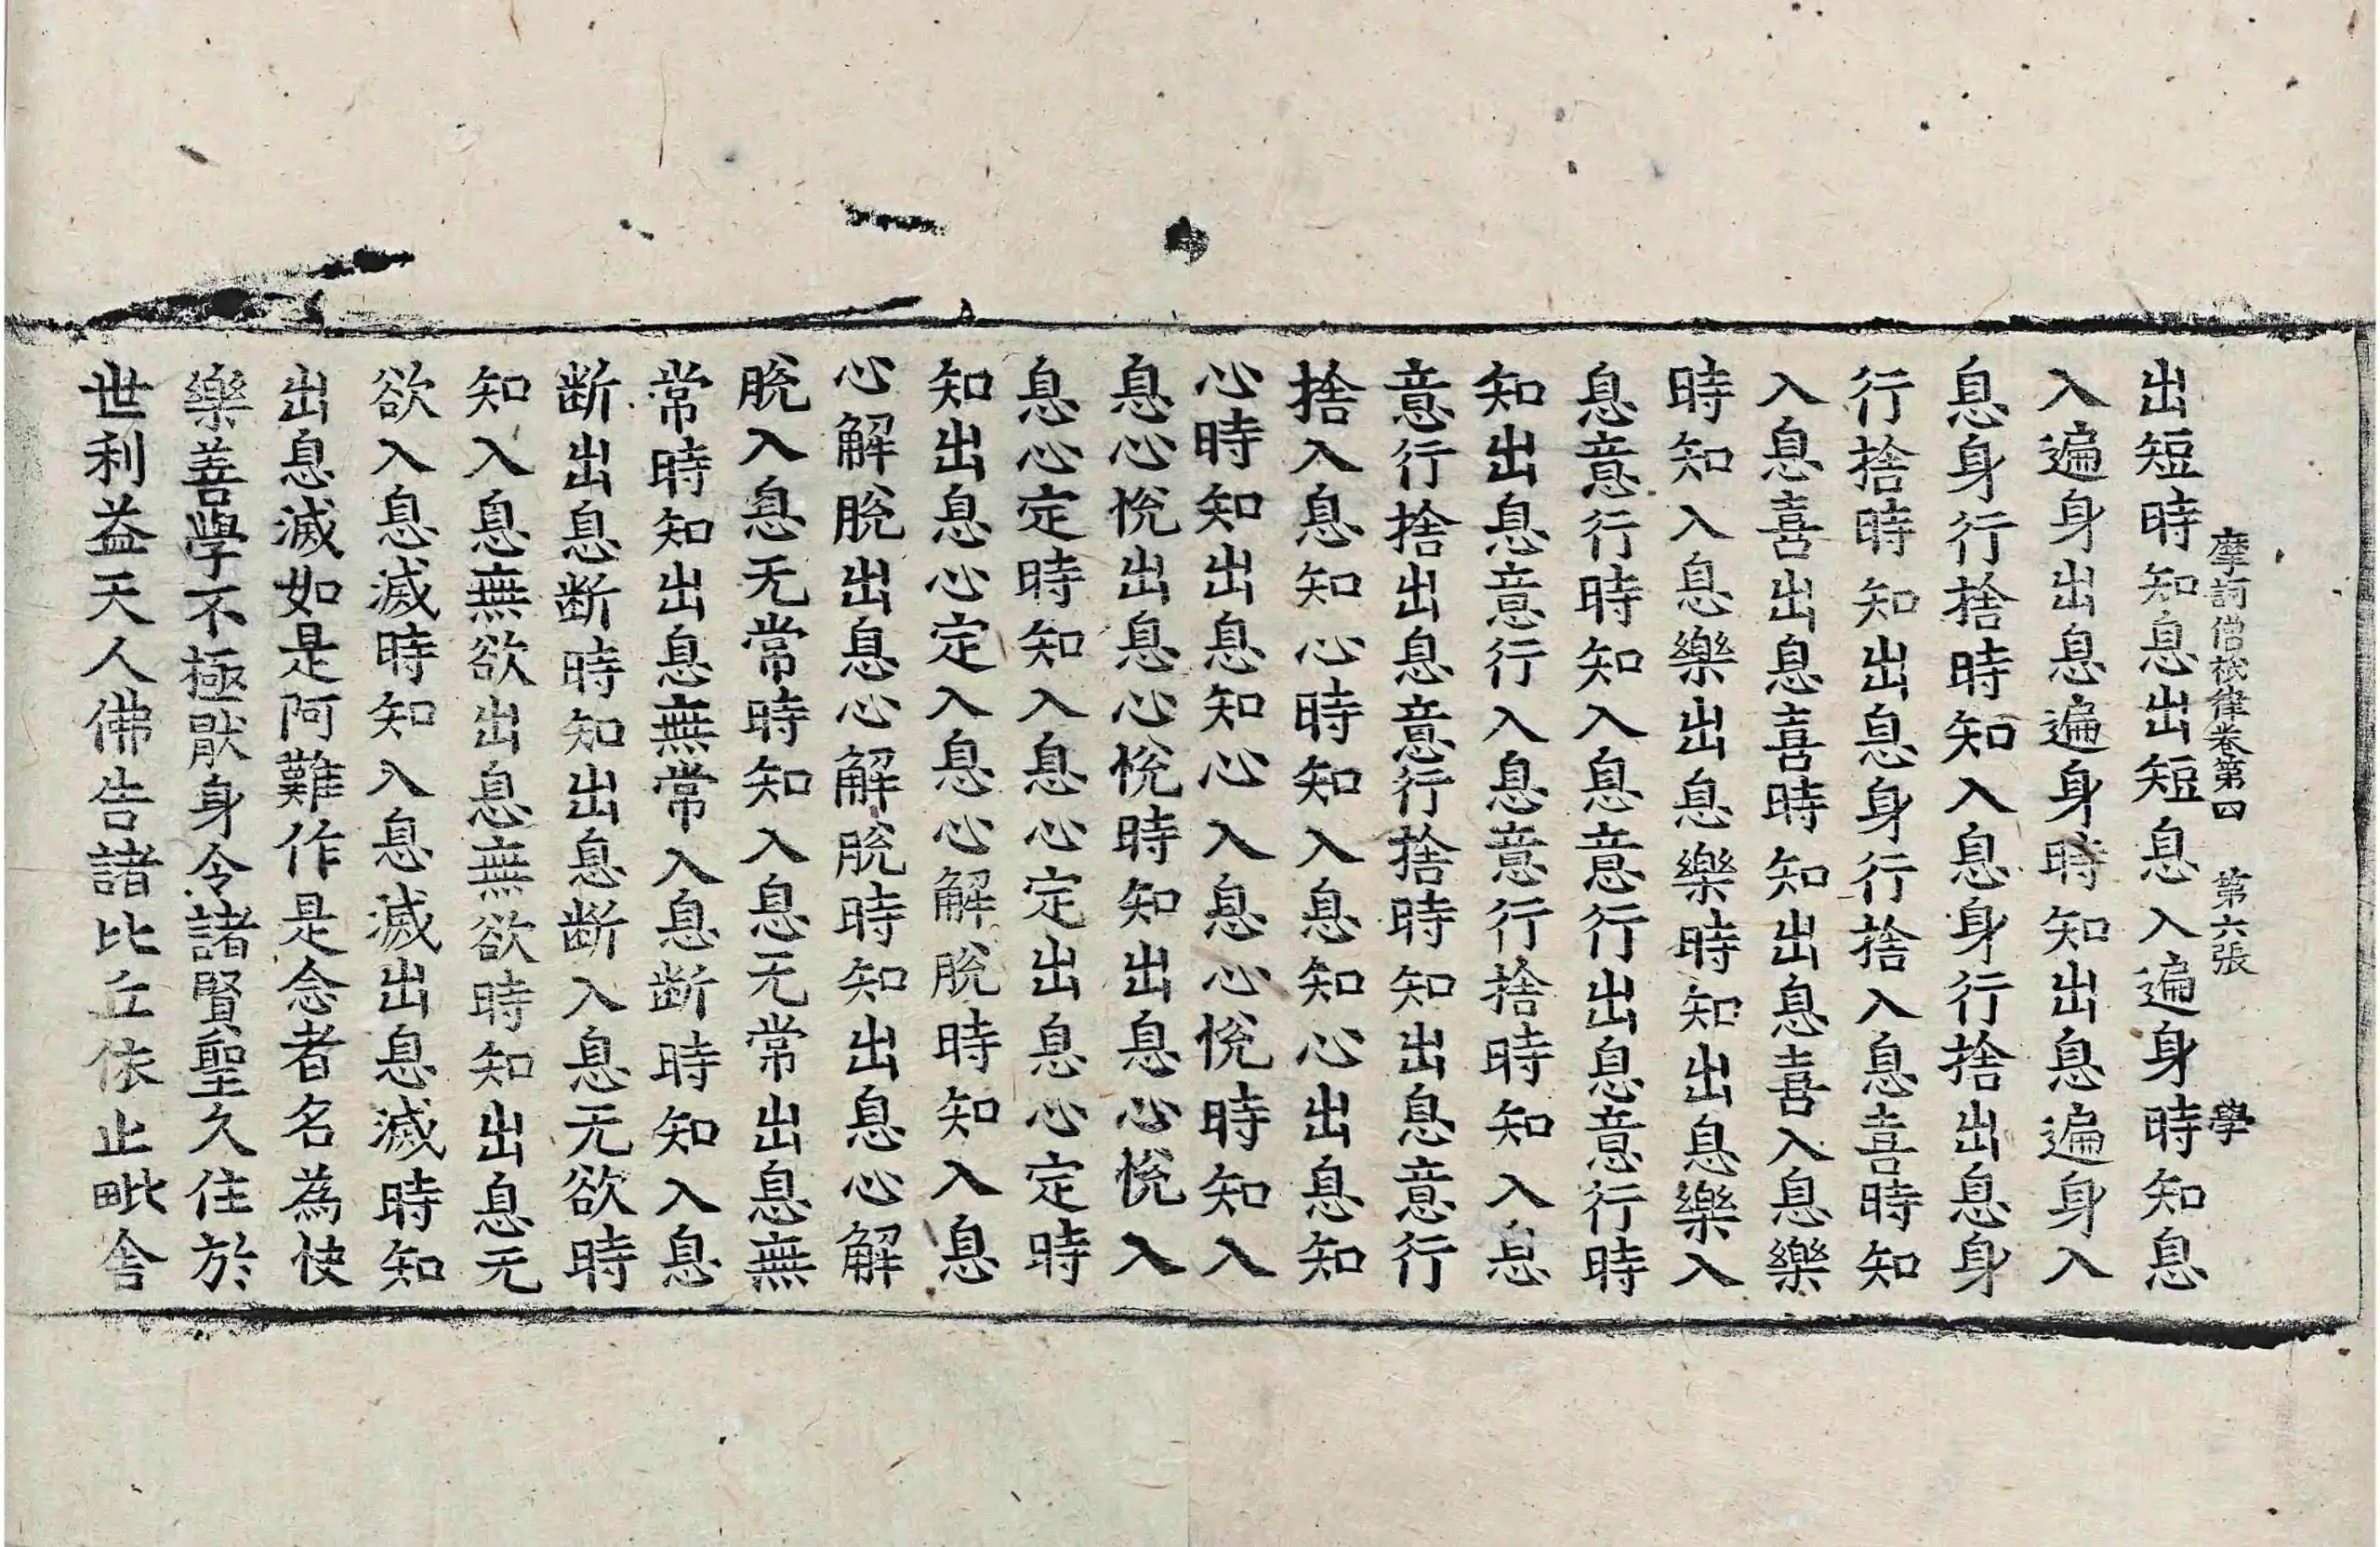 摩訶僧祇律卷第四 第六張 學
出短時知息出短息入遍身時知息
入遍身出息遍身時知出息遍身入
息身行捨時知入息身行捨出息身
行捨時知出息身行捨入息喜時知
入息喜出息喜時知出息喜入息樂
時知入息樂出息樂時知出息樂入
息意行時知入息意行出息意行時
知出息意行入息意行捨時知入息
意行捨出息意行捨時知出息意行
捨入息知心時知入息知心出息知
心時知出息知心入息心悅時知入
息心悅出息心悅時知出息心悅入
息心定時知入息心定出息心定時
知出息心定入息心解脫時知入息
心解脫出息心解脫時知出息心解
脫入息无常時知入息无常出息無
常時知出息無常入息断時知入息
断出息断時知出息断入息无欲時
知入息無欲出息無欲時知出息无
欲入息滅時知入息滅出息滅時知
出息滅如是阿難作是念者名為快
樂善學不極猒身令諸賢聖久住於
世利益天人佛告諸比丘依止毗舍